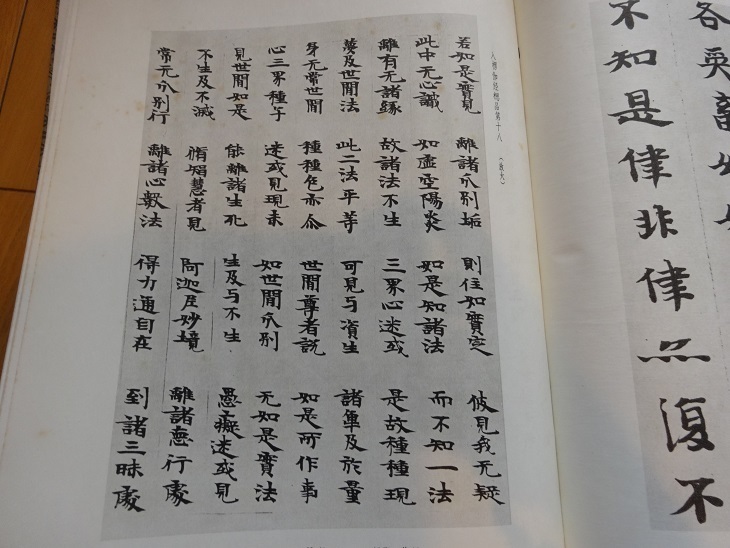 不知是律非律無復不
入楞伽経総品第十八 （拡大）
若如是實見 離諸分別垢 則住如實定 彼見我无疑
此中无心識 如虛空陽炎 如是知諸法 而不知一法
離有无諸緣 故諸法不生 三界心迷或 是故種種現
夢及世間法 此二法平等 可見与資生 諸及於量
身无常世間 種種色亦尒 世間尊者說 如是所作事
心三界種子 迷或見現未 如世間分別 无如是實法
見世間如是 能離諸生死 生及与不生 愚癡迷或見
不生及不滅 脩智慧者見 阿迦尼妙境 離諸惡行處
常无分別行 離諸心數法 得力通自在 到諸三昧處